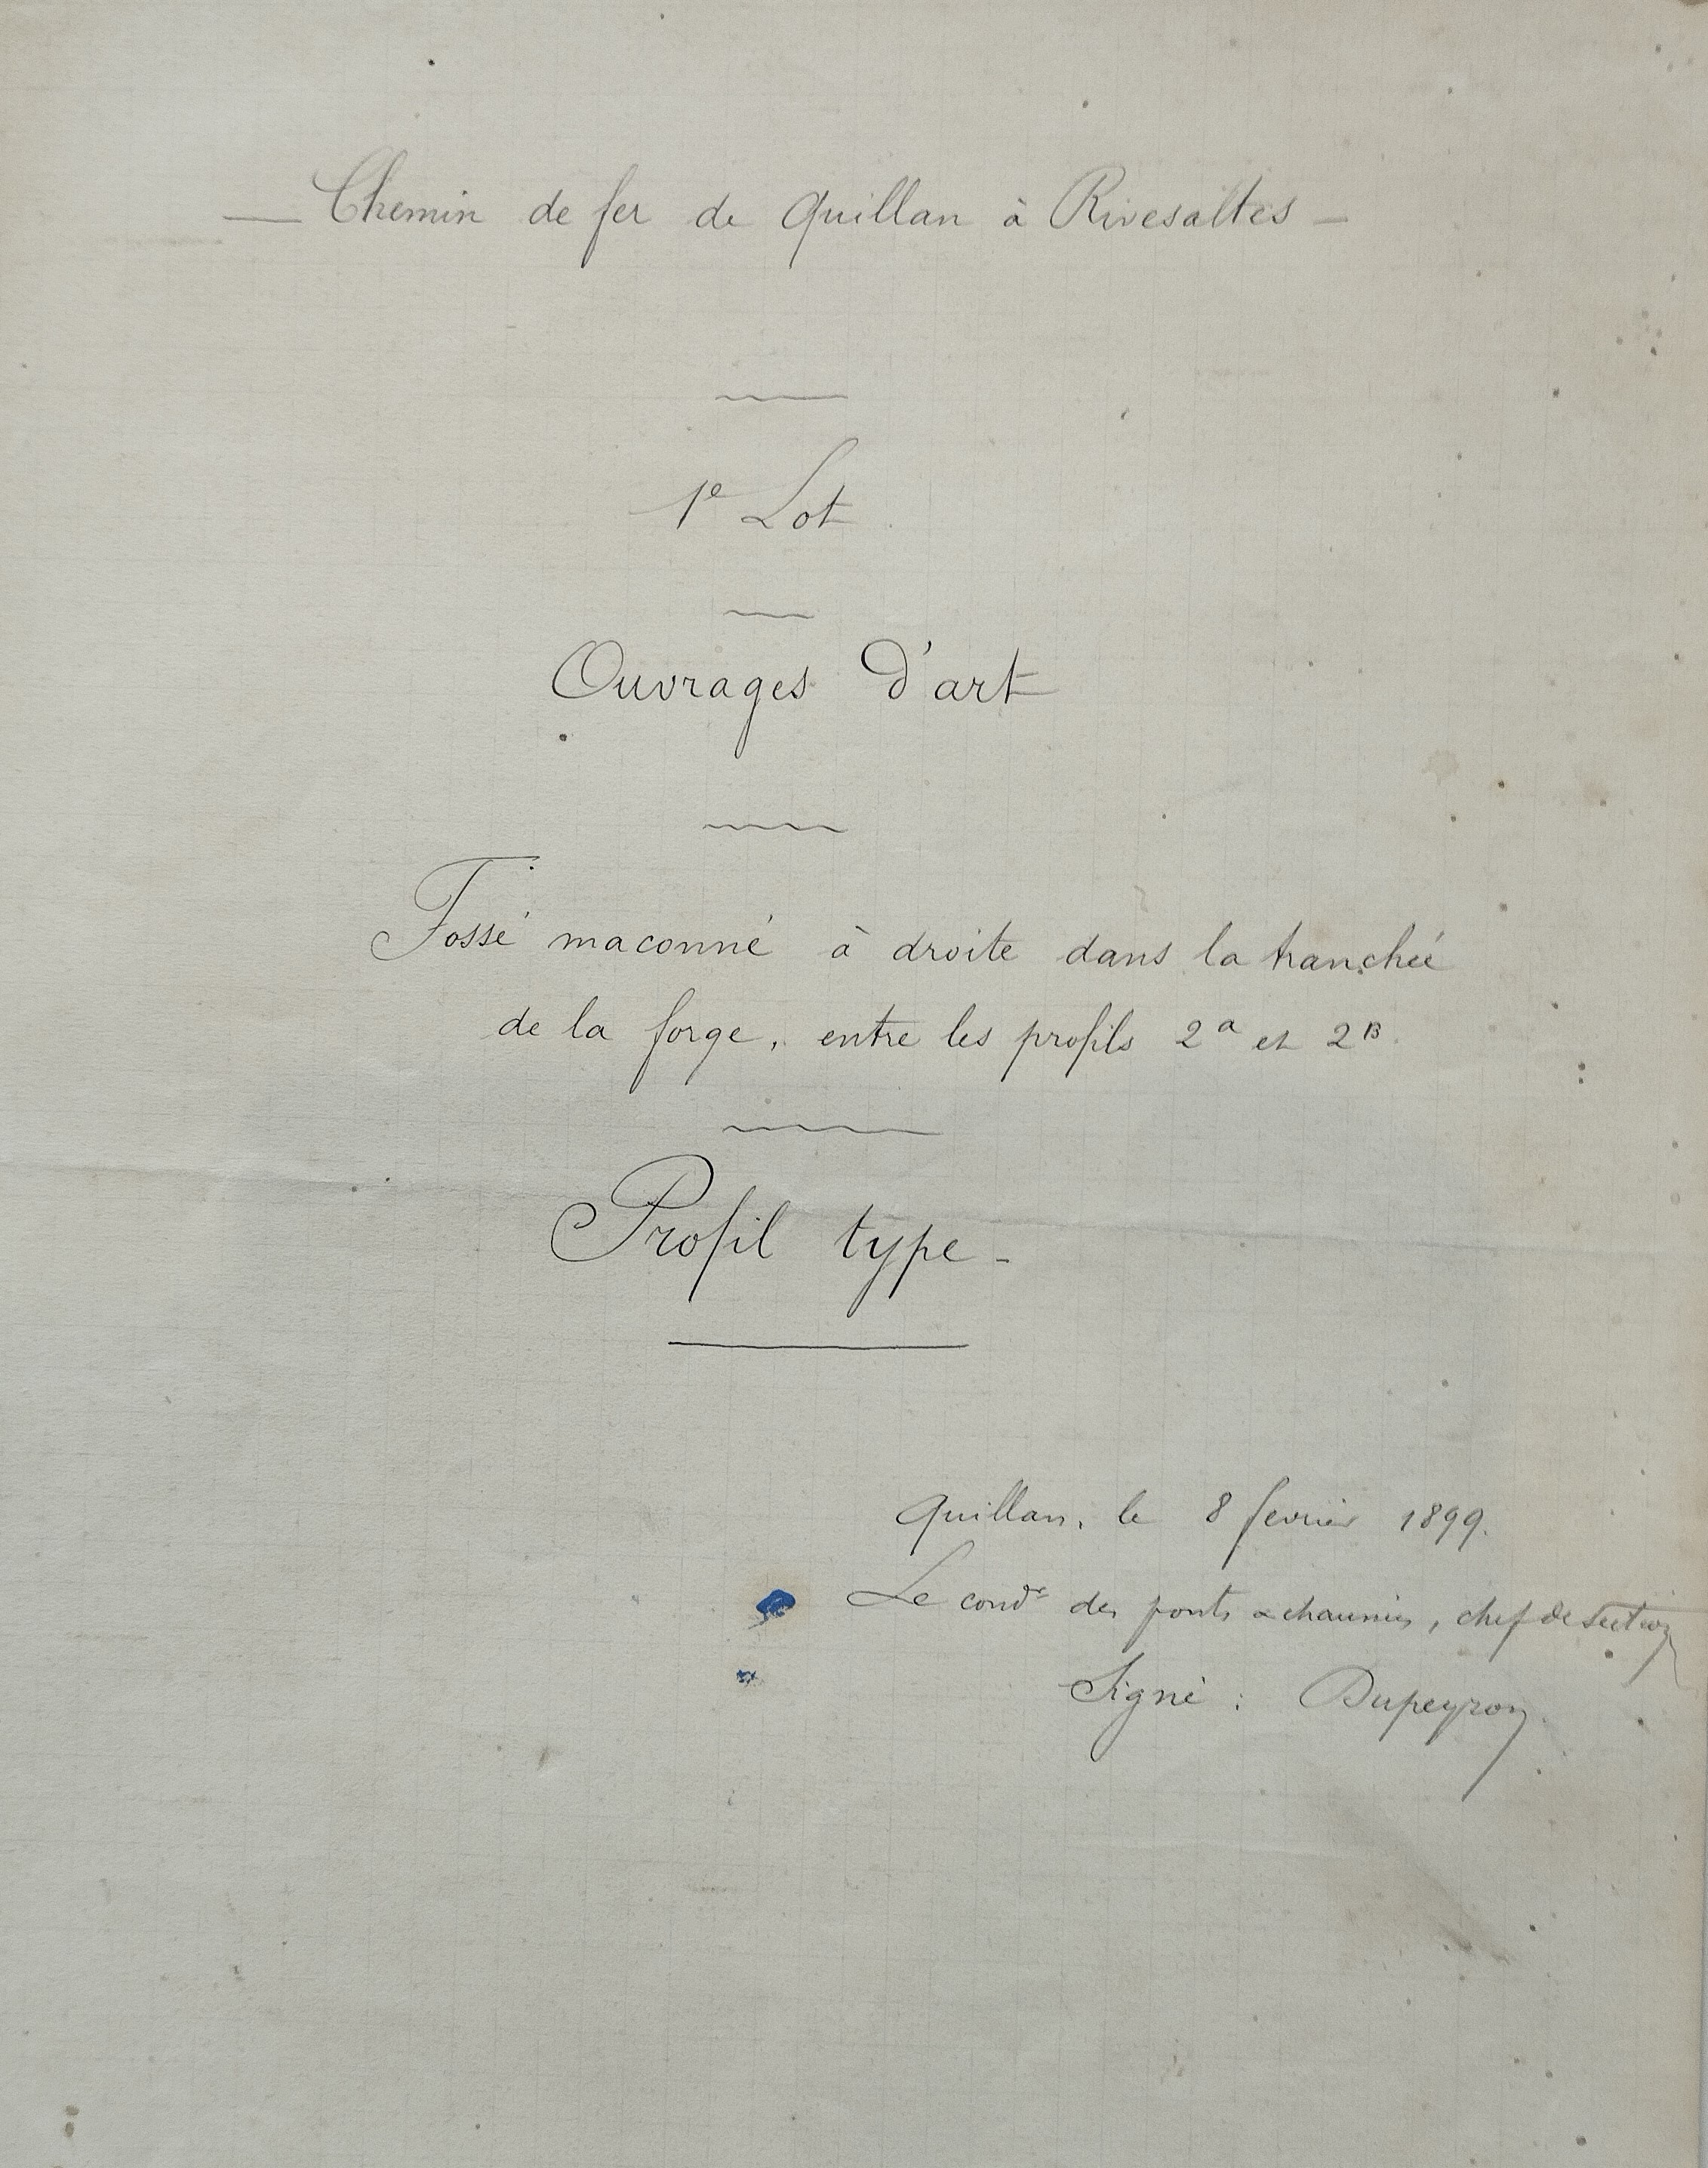 — Chemin de fer de Quillan à Rivesaltes —
1e Lot
Ouvrages d'art
Fossé maconné à droite dans la tranchée
de la forge, entre les profils 2a et 2B.
Profil type -
Quillan, le 8 fevrier 1899.
Le condr des ponts & chaussées, chef de section
Signé : Dupeyron